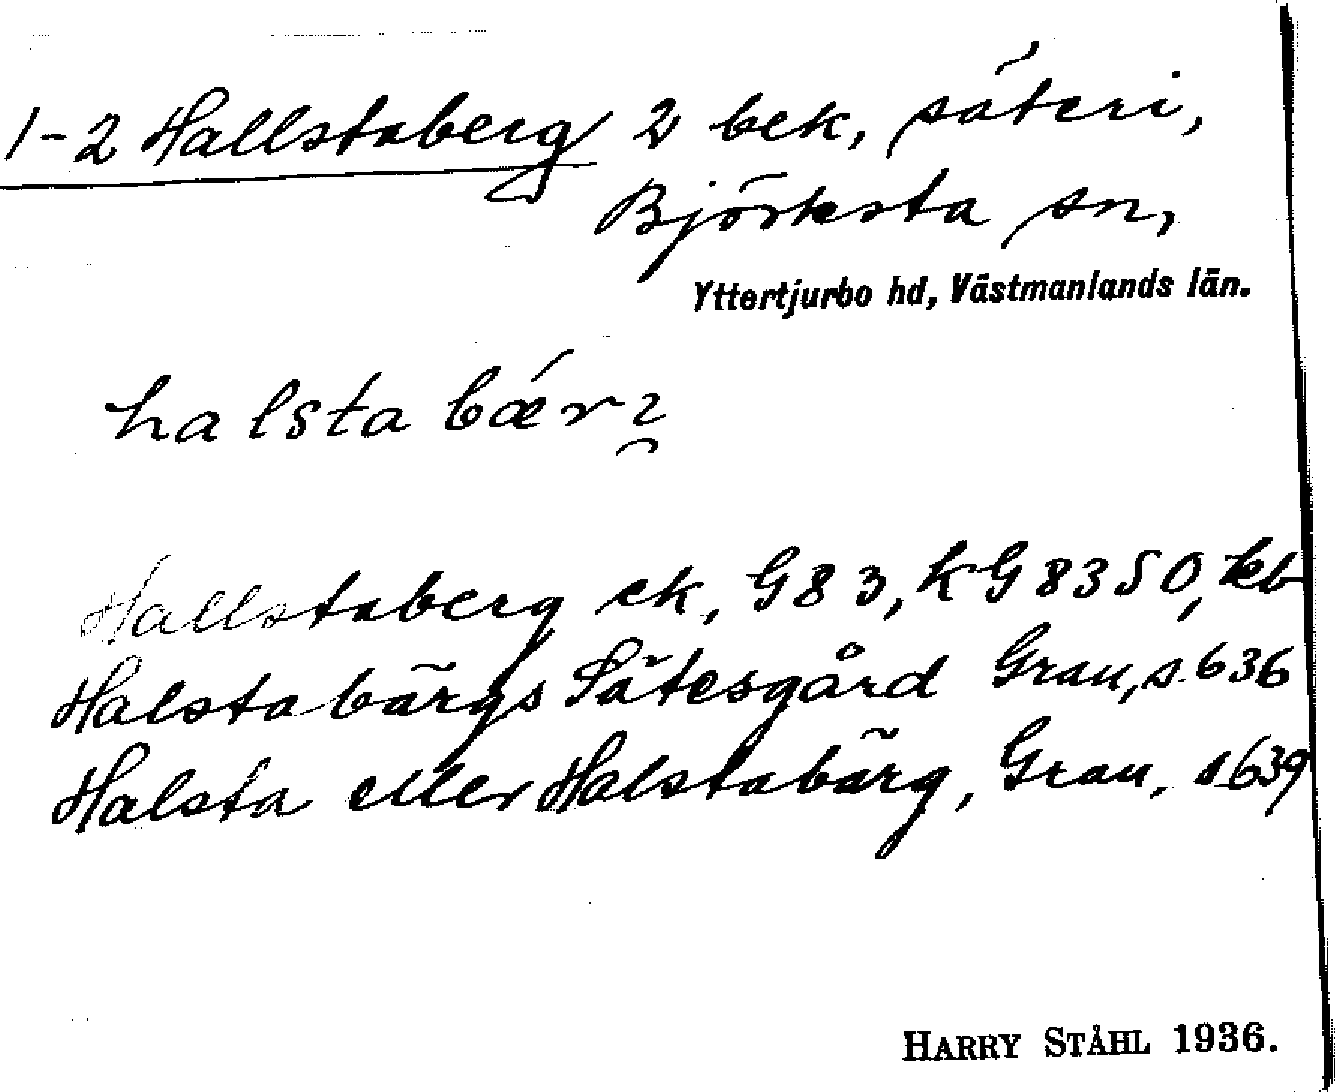 1-2 Hallstaberg 2 bek, säteri,
Björksta sn,
Yttertjurbo hd, Västmanlands län.
halstabær
Hallstaberg ek, G 83, KG 8350, kb
Halstabärgs Sätesgård Grau, s. 636
Halsta eller Halstabärg, Grau, s 639
HARRY STÅHL 1936.